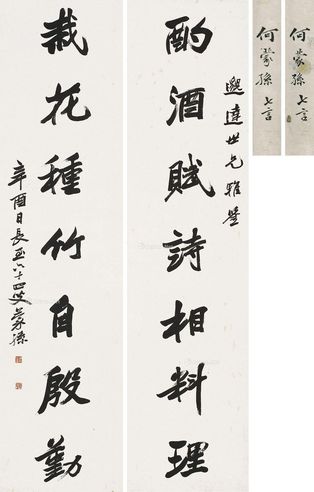 酌酒賦詩相料理
達世兄雅鑒
栽花種竹自殷勤
辛酉日長至六十四叟蒙孫
何蒙孫七言
何蒙孫七言